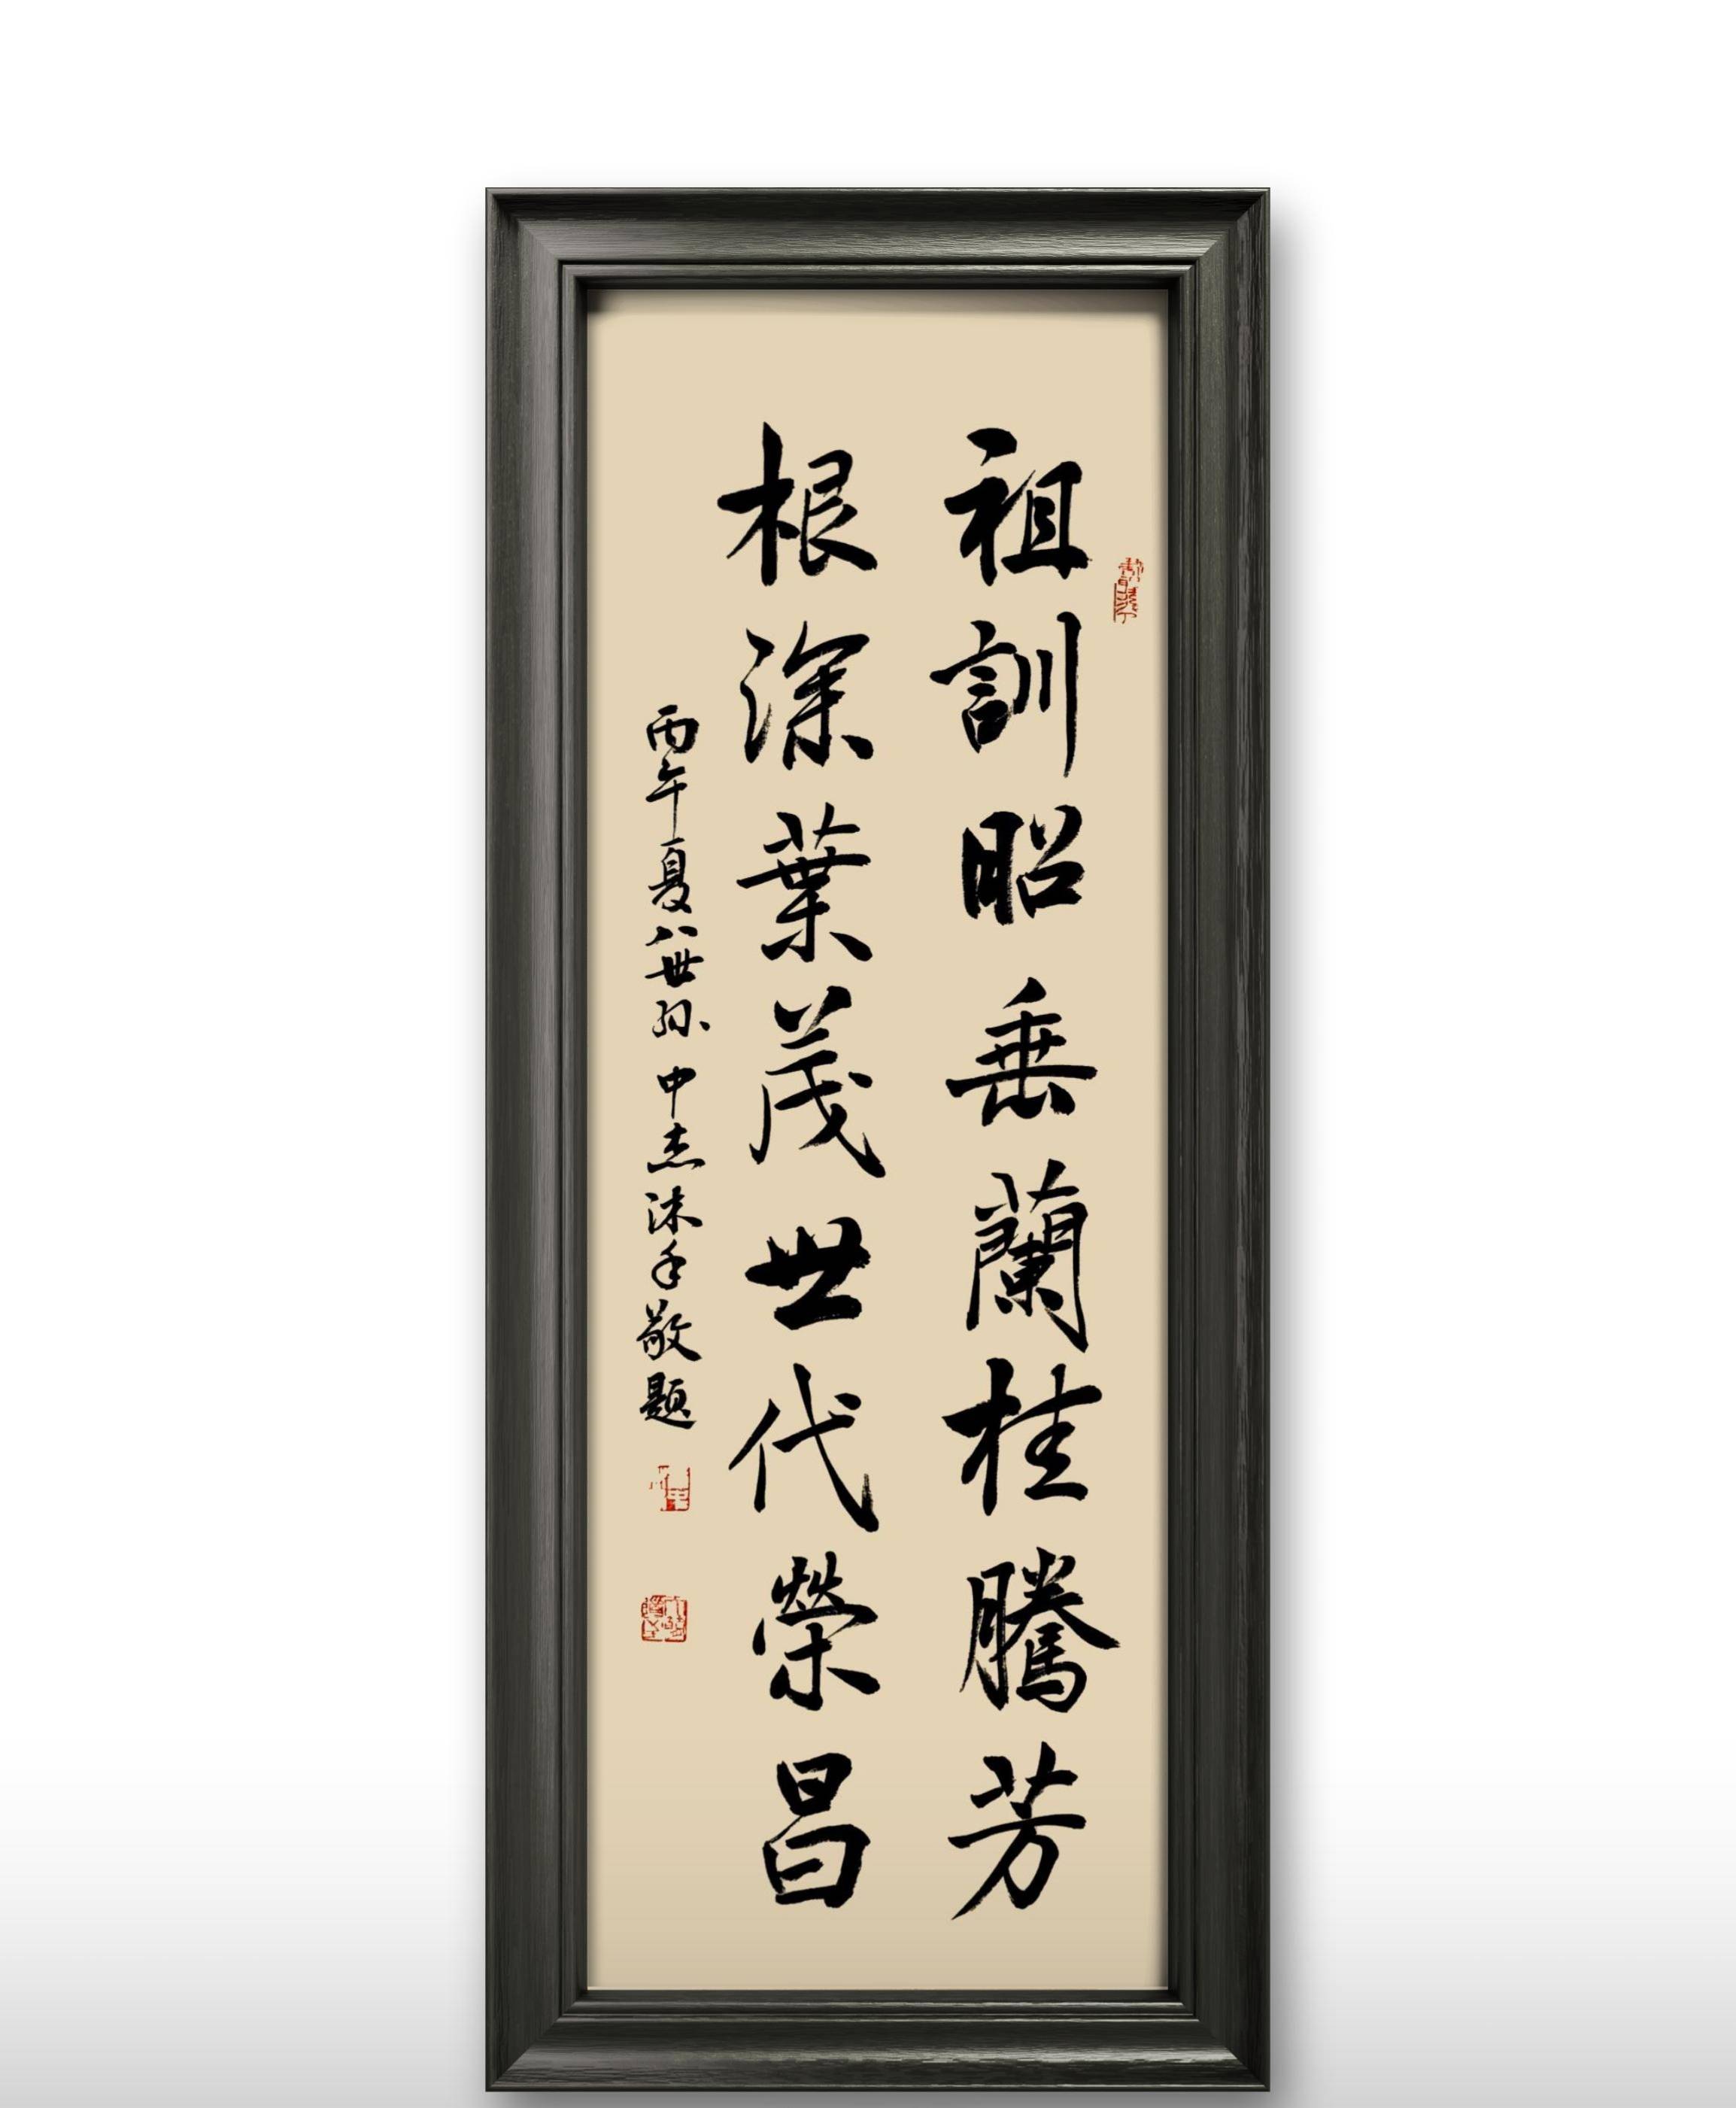 祖訓昭垂蘭桂騰芳
根深葉茂世代榮昌
丙午夏八世孙中杰沐手敬题